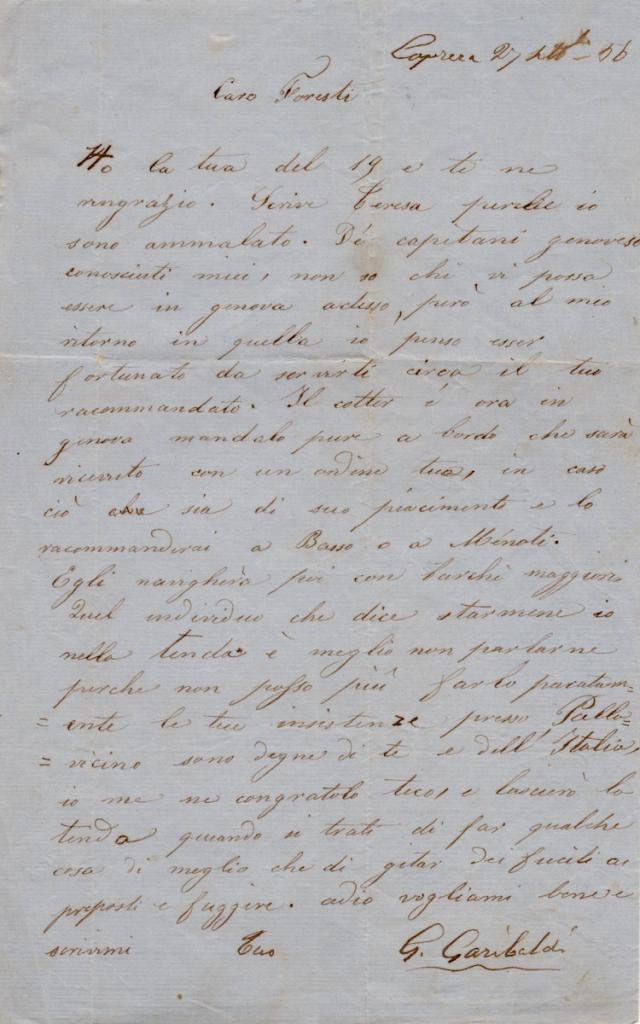 Caprera 27 - 56
Caro Foresti
Ho la tua del 19 e te ne
ringrazio. Scrive Teresa perche io
sono ammalato. De capitani genovesi
conosciuti miei, non so chi vi possa
essere in genova adesso, però al mio
ritorno in quella io penso esser
fortunato da servirti circa il tuo
racommandato. Il cotter é ora in
genova mandalo pure a bordo che sarà
ricevuto con un ordine tuo, in caso
ciò sia di suo piacimento e lo
racommanderai a Basso o a Ménoti.
Egli navigherà poi con barchi maggiori
Quel individuo che dice starmene io
nella tenda è meglio non parlarne
perche non posso più farlo pacatam=
=ente le tue insistenze presso Palla=
=vicino sono degne di te e dell'Italia,
io me ne congratolo teco, e lascierò la
tenda quando si trati di far qualche
cosa di meglio che di gitar dei fucili ai
preposti e fuggire. adio vogliami bene e
scrivimi Tuo G. Garibaldi